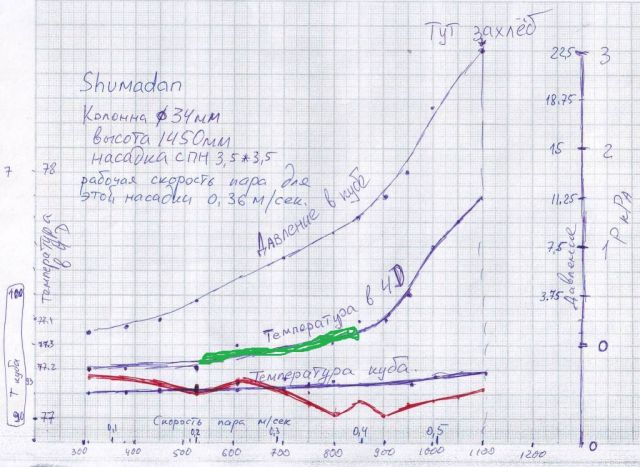 Тут захлёб
Shumadan
Колонна ϕ34мм
высота 1450мм
насадка СПН 3,5*3,5
рабочая скорость пара для
этой насадки 0,36 м/сек.
Давление в кубе
Температура в ЧД
Температура куба.
Скорость пара м/сек
0,1 0,2 0,3 0,4 0,5
300 400 500 600 700 800 900 1000 1100 1200
7
78
Температура
в ЧД
77.3
77.2
77
100
93
90
Т куба
22,5
18.75
15
11,25
7,5
3.75
0
Давление
3
2
1
0
Р кПа